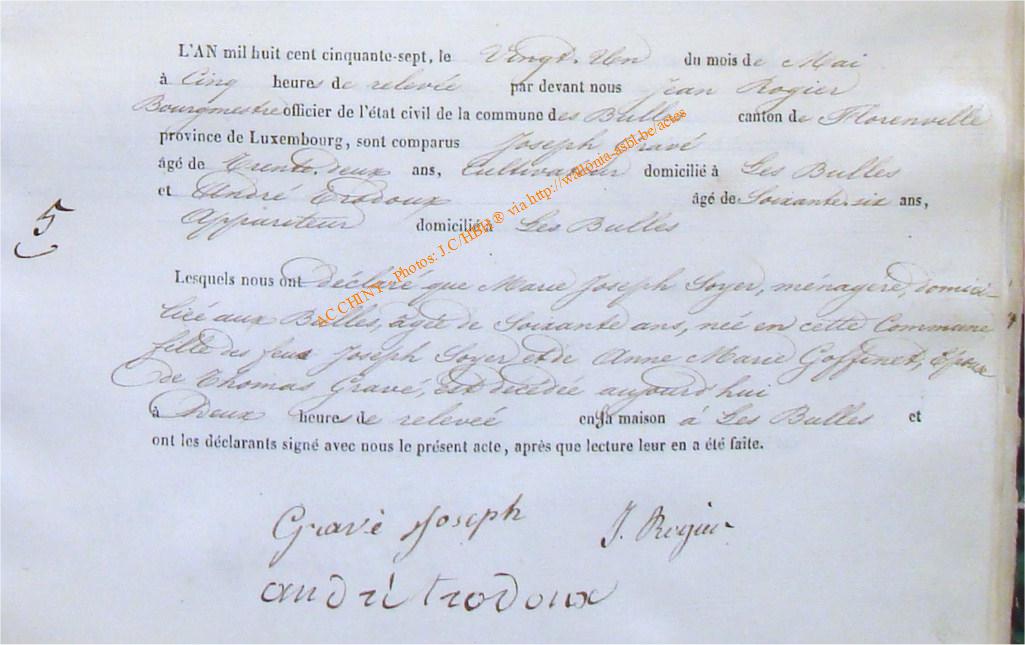 L'AN mil huit cent cinquante-sept, le Vingt-Un du mois de Mai
à Cinq heures de relevée par devant nous Jean Rogier
Bourgmestre officier de l'état civil de la commune des Bulles canton de Florenville
province de Luxembourg, sont comparus Joseph Gravé
âgé de Trente-deux ans, Cultivateur domicilié à Les Bulles
et André Trodoux âgé de Soixante-six ans,
Appariteur domicilié à Les Bulles
5
Lesquels nous ont Déclaré que Marie Joseph Soyer, ménagère, domici-
liée aux Bulles, âgée de Soixante ans, née en cette Commune,
fille des feux Joseph Soyer et de Anne Marie Goffinet, Epouse
de Thomas Gravé, est décédée aujourd'hui
à Deux heures de relevée en sa maison à Les Bulles et
ont les déclarants signé avec nous le présent acte, après que lecture leur en a été faite.
Gravé Joseph J. Rogier
andré trodoux
ACCHINY - Photos: J.C/HBH® via http://wallonia-asbl.be/actes